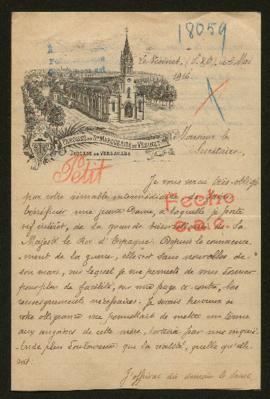 18059
Le Vésinet, (S.&O.) le 6 Mai
1916.
PAROISSE DE Ste MARGUERITE DU VÉSINET
DIOCÈSE DE VERSAILLES
Monsieur le
Secrétaire,
Petit
Je vous serai très obligé
par votre aimable intermédiaire, de faire
bénéficier une jeune Dame, à laquelle je porte
vif intérêt, de la grande bienveillance de Sa
Majesté le Roi d'Espagne. Depuis le commence
ment de la guerre, elle est sans nouvelles de
son mari, sur lequel je me permets de vous donner
pour plus de facilité, sur une page ci-contre, les
renseignements nécessaires. Je serais heureux si
votre obligeance me permettait de mettre un terme
aux angoisses de cette mère, torturée par une inquié
tude plus douloureuse que la réalité, quelle qu'elle
soit.